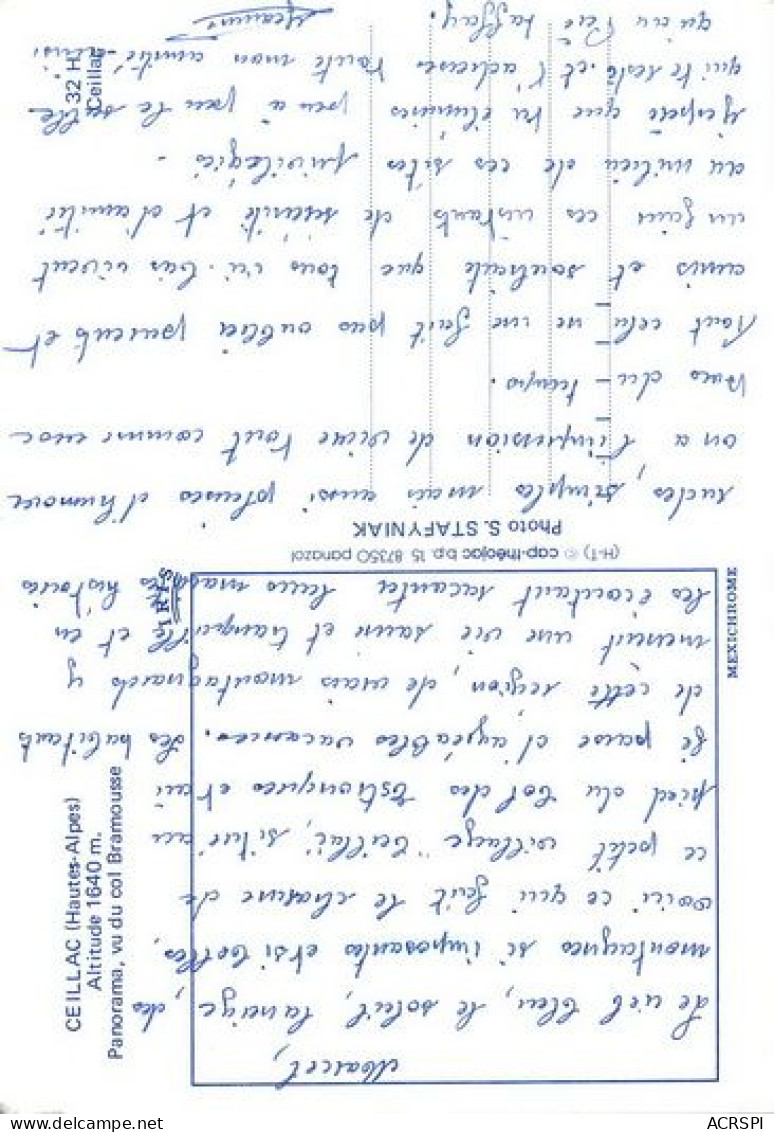 Marcel,
Le ciel bleu, le soleil, la neige, des
montagnes si imposantes et si belles,
voici ce qui fait le charme de
ce petit village "Ceillac", situé au
pied du Col des Estronques et où
je passe d'agréables vacances. Les habitants
de cette région, de vrais montagnards y
mènent une vie saine et tranquille et en
les écoutant raconter leurs histoires
rudes, simples mais aussi pleines d'humour
on a l'impression de vivre tout comme eux
hors du temps.
Tout cela ne me fait pas oublier parents et
amis et souhaite que tous vivent
un jour ces instants de sérénité et d'amitié
au milieu de ces sites privilégiés -
J'espère que tu élimines peu à peu le
qui te reste et t'adresse toute mon amitié ainsi
qu'au Père
32 H
Ceillac
Photo S. STAFYNIAK
(H-T) © cap-théojac b.p. 15 87350 panazol
IRIS
MEXICHROME
CEILLAC (Hautes-Alpes)
Altitude 1640 m.
Panorama, vu du col Bramousse
ACRSPI